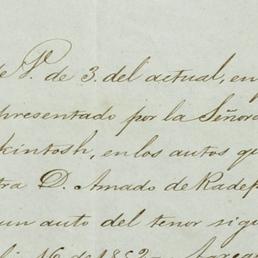 de V. de 3. del actual, en
presentado por la Señora
kintosh, en los autos qu
tra D. Amado de Radep
un auto del tenor sigu
16 de 1852